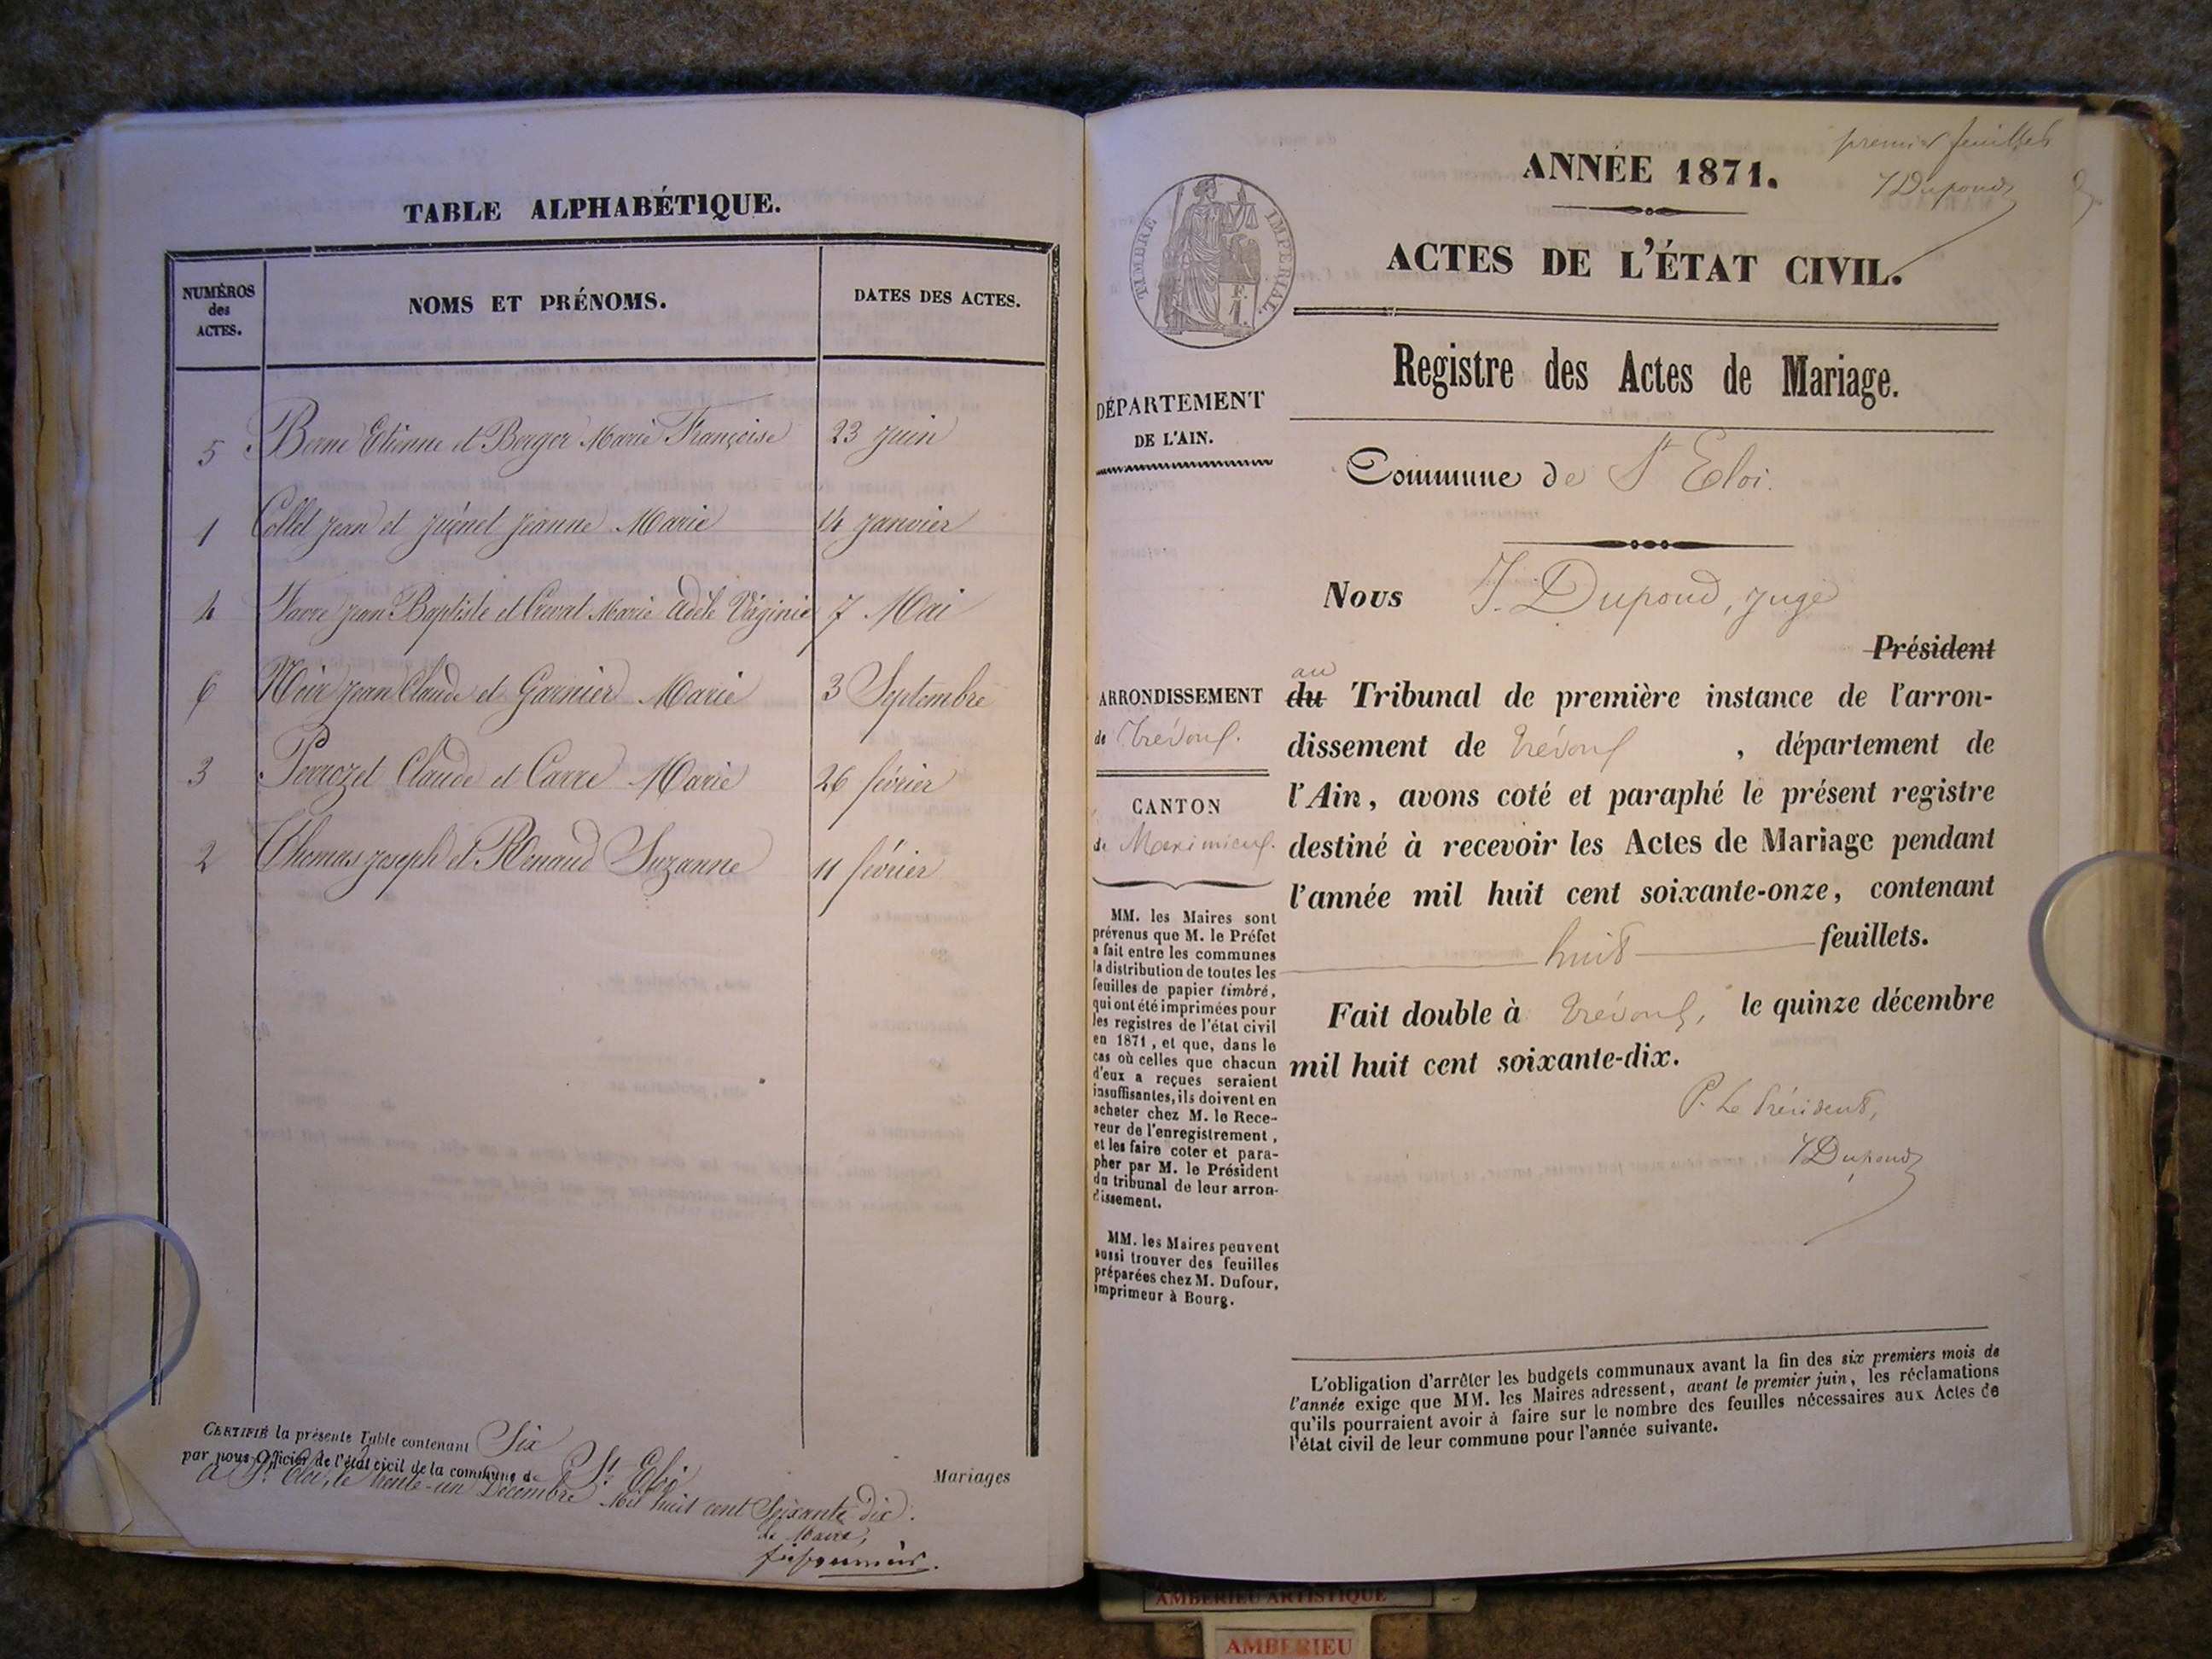 TABLE ALPHABÉTIQUE.
NUMÉROS
des
ACTES.
NOMS ET PRÉNOMS.
DATES DES ACTES.
5 Berne Etienne et Berger Marie Françoise 23 juin
1 Collet jean et jeanne Marie 14 janvier
4 Favre jean Baptiste et Marie Adèle Virginie 7 Mai
6 Noir jean Claude et Garnier Marie 3 Septembre
3 Perrozet Claude et Carre Marie 26 février
2 Thomas joseph et Renaud Suzanne 11 février
CERTIFIÉ la présente Table contenant Six
Mariages
par nous Officier de l'état civil de la commune de St Eloi
A St Eloi, le trente-un Décembre Mil huit cent Soixante dix.
Le Maire,
premier feuillet
J Dupond
ANNÉE 1871.
ACTES DE L'ÉTAT CIVIL.
TIMBRE IMPÉRIAL.
Registre des Actes de Mariage.
DÉPARTEMENT
DE L'AIN.
Commune de St Eloi.
Nous J. Dupond, juge
Président
au
du Tribunal de première instance de l'arron-
dissement de Trévoux, département de
l'Ain, avons coté et paraphé le présent registre
destiné à recevoir les Actes de Mariage pendant
l'année mil huit cent soixante-onze, contenant
huit feuillets.
Fait double à Trévoux, le quinze décembre
mil huit cent soixante-dix.
P. Le Président,
J Dupond
ARRONDISSEMENT
de Trévoux.
CANTON
de Meximieux.
MM. les Maires sont
prévenus que M. le Préfet
a fait entre les communes
la distribution de toutes les
feuilles de papier timbré,
qui ont été imprimées pour
les registres de l'état civil
en 1871, et que, dans le
cas où celles que chacun
d'eux a reçues seraient
insuffisantes, ils doivent en
acheter chez M. le Rece-
veur de l'enregistrement,
et les faire coter et para-
pher par M. le Président
du tribunal de leur arron-
dissement.
MM. les Maires peuvent
aussi trouver des feuilles
préparées chez M. Dufour,
imprimeur à Bourg.
L'obligation d'arrêter les budgets communaux avant la fin des six premiers mois de
l'année exige que MM. les Maires adressent, avant le premier juin, les réclamations
qu'ils pourraient avoir à faire sur le nombre des feuilles nécessaires aux Actes de
l'état civil de leur commune pour l'année suivante.
AMBERIEU ARTISTIQUE
AMBERIEU